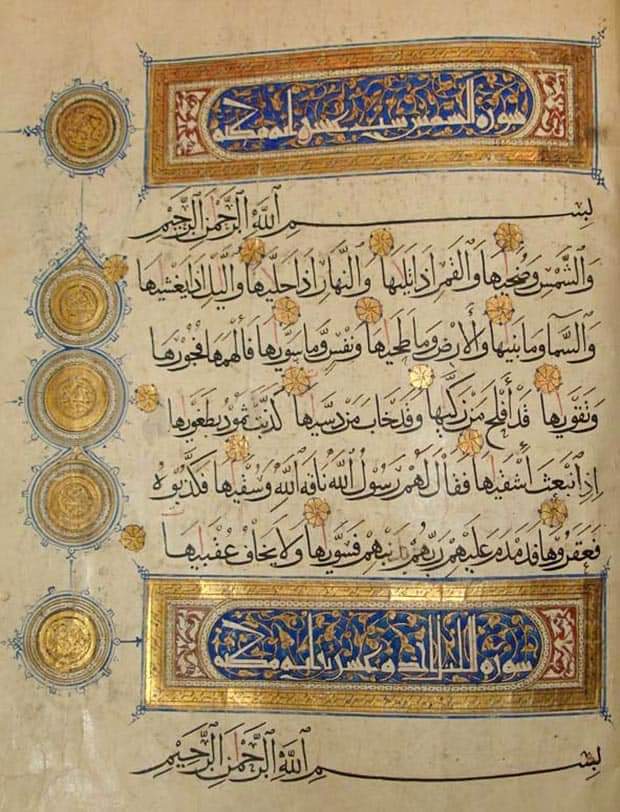 سورة الشمس ست عشرة آية مكية
بسم الله الرحمن الرحيم
والشمس وضحيها والقمر اذا تليها والنهار اذا جليها والليل اذا يغشيها
والسما وما بنيها والأرض وما طحيها ونفس وما سويها فألهمها فجورها
وتقويها قد أفلح من زكيها وقد خاب من دسيها كذبت ثمود بطغويها
إذ انبعث أشقيها فقال لهم رسول الله ناقة الله وسقيها فكذبوه
فعقروها فدمدم عليهم ربهم بذنبهم فسويها ولا يخاف عقبيها
سورة الليل وعشرون آية مكية
بسم الله الرحمن الرحيم